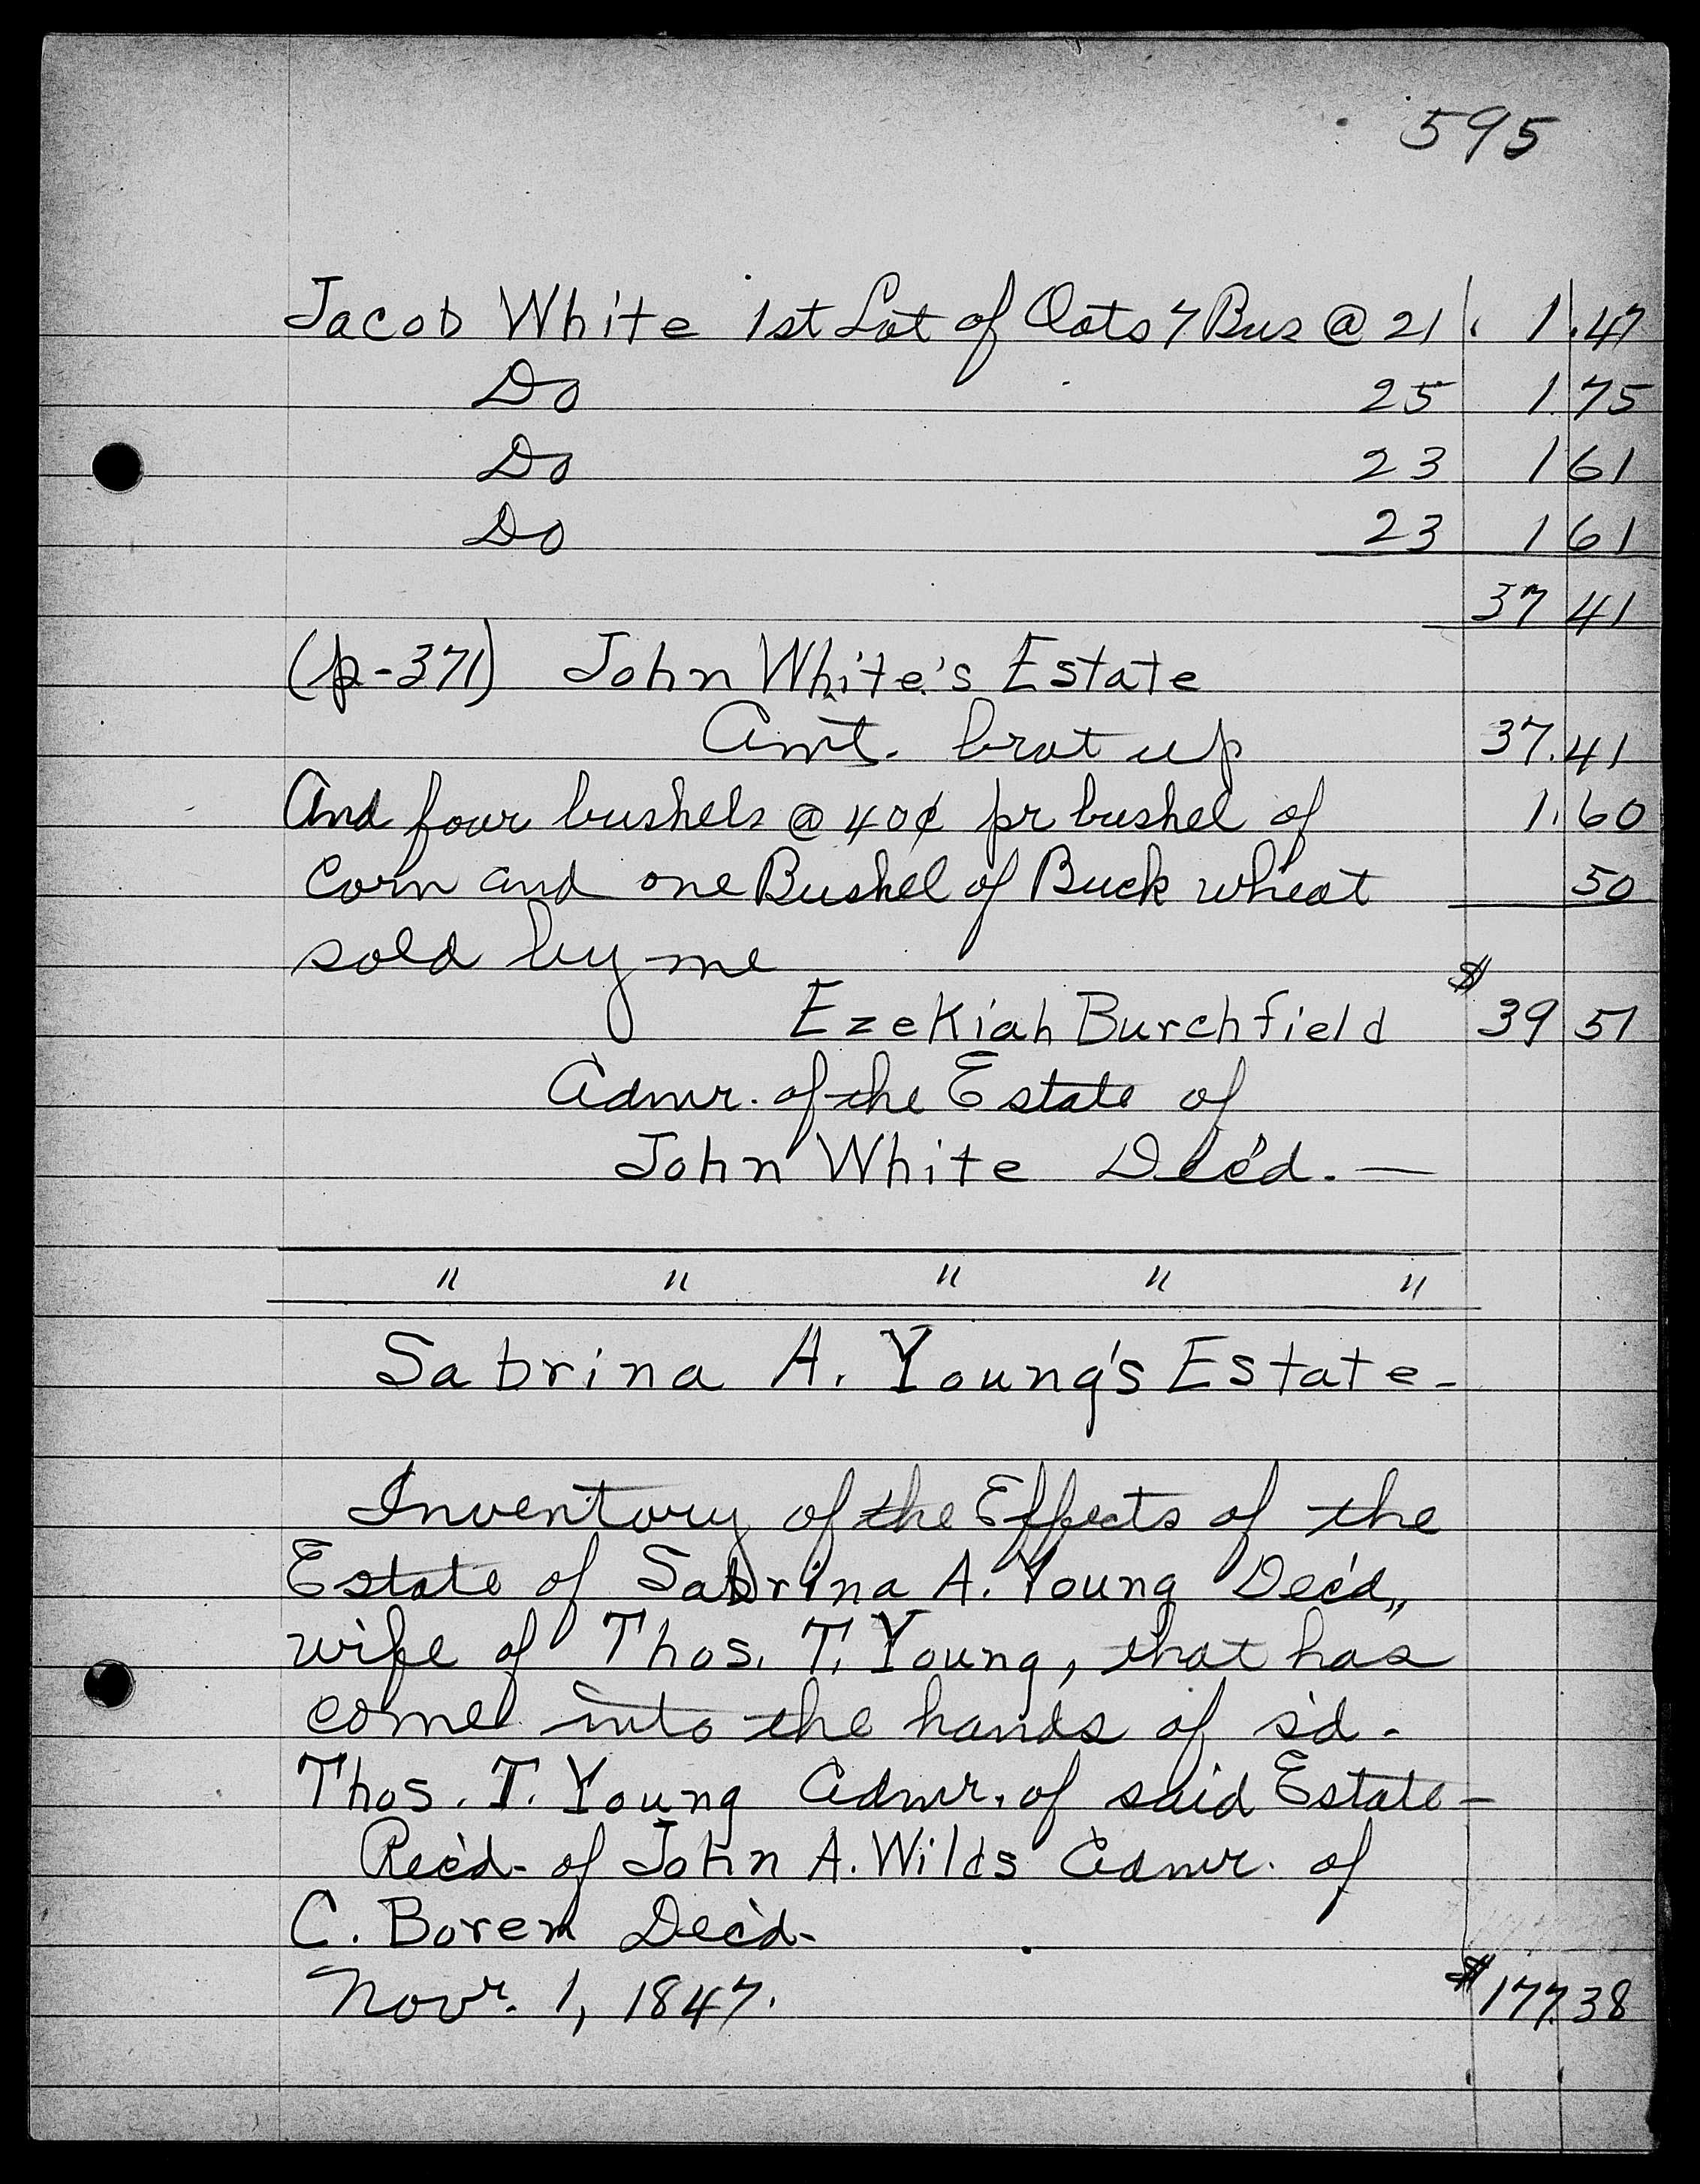 595
Jacob White 1st Lot of Oats 7 Bus @ 21 1.47
Do 25 1.75
Do 23 1 61
Do 23 1 61
37 41
(p-371) John White's Estate
Amt. brot up 37.41
And four bushels @ 40¢ pr bushel of 1.60
Corn and one Bushel of Buck wheat 50
sold by me
Ezekiah Burchfield $39 51
Admr. of the Estate of
John White Dec'd. —
" " " " "
Sabrina A. Young's Estate-
Inventory of the Effects of the
Estate of Sabrina A. Young Dec'd,,
wife of Thos. T. Young, that has
come into the hands of s'd.
Thos. T. Young Admr. of said Estate-
Rec'd- of John A. Wilds Admr. of
C. Boren Dec'd-
Novr. 1, 1847. $177.38